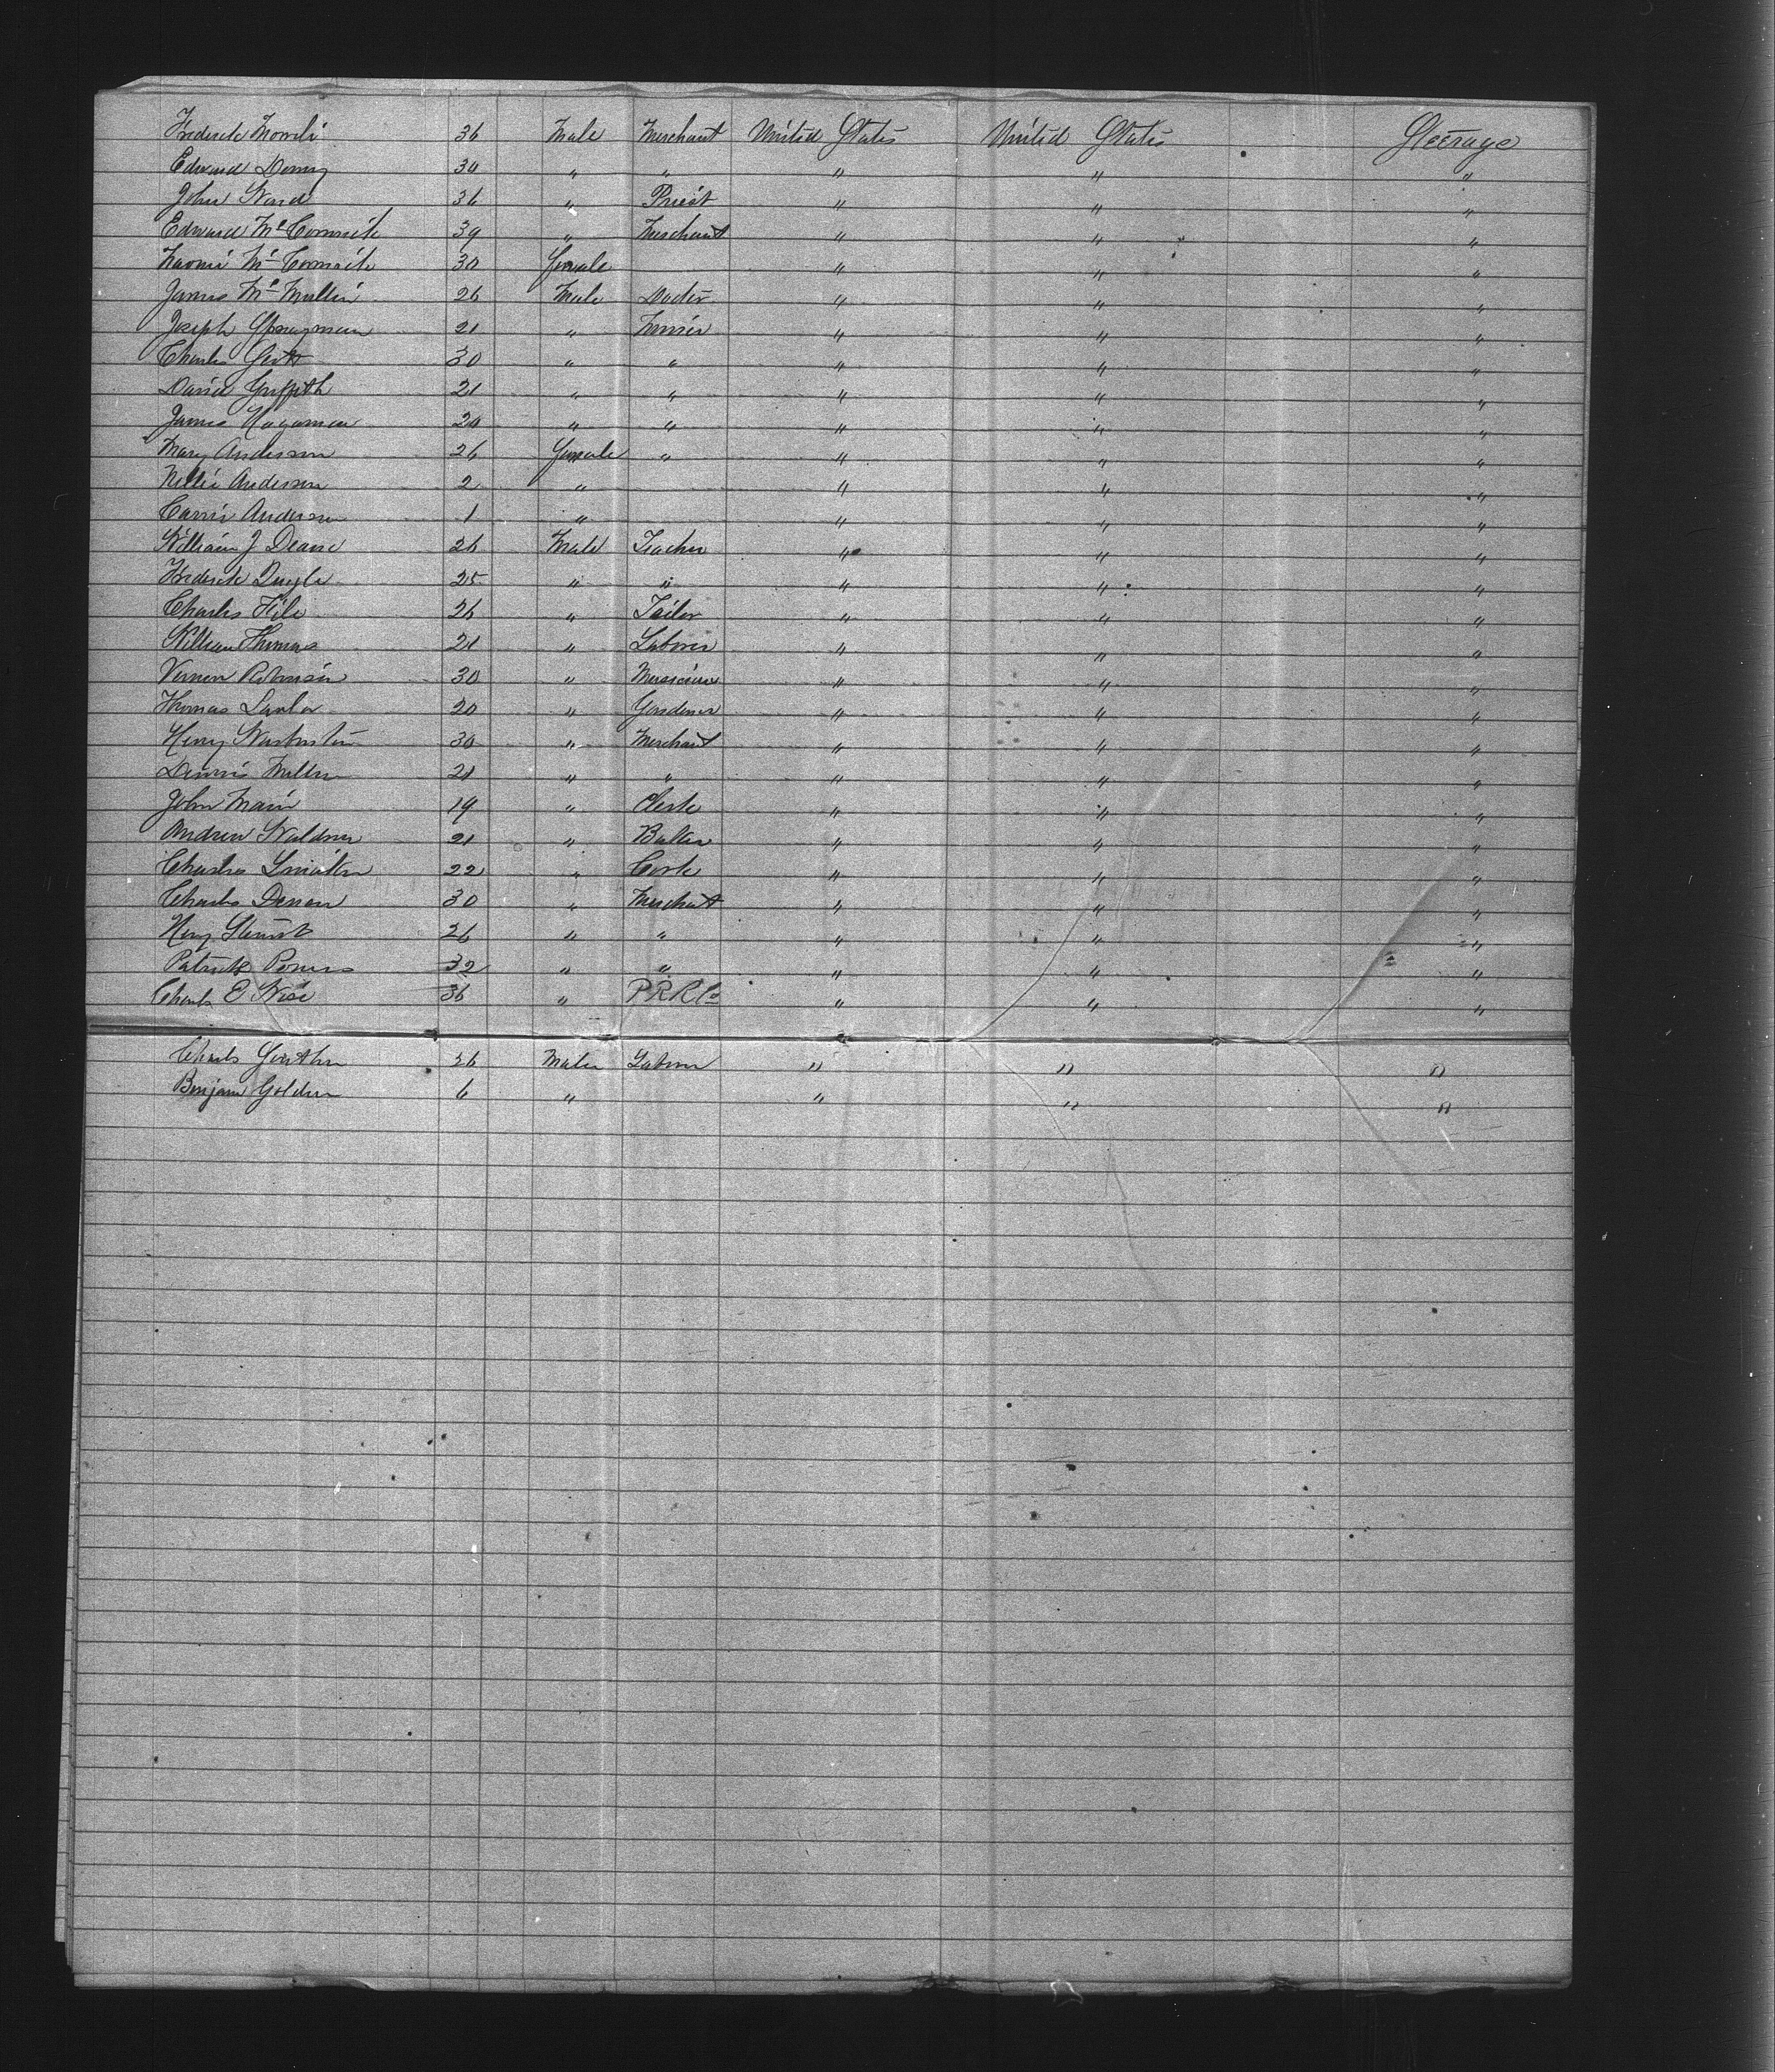 Frederick 36 Male Merchant United States United States Steerage
Edward 30 " " " " "
John Ward 36 " Priest " " "
Edward McCormick 39 " Merchant " " "
Naomi McCormick 30 Female " " "
James McMullin 26 Male Doctor " " "
Joseph 21 " " " "
Charles 30 " " " " "
David Griffith 21 " " " " "
James Hagaman 20 " " " " "
Mary Anderson 26 Female " " " "
Nellie Anderson 2 " " " "
Carrie Anderson 1 " " " "
William J Deane 26 Male Teacher " " "
Frederick 25 " " " " "
Charles 26 " Tailor " " "
William Thomas 21 " Laborer " " "
Vernon Robinson 30 " Musician " " "
Thomas 20 " Gardener " " "
Henry 30 " Merchant " " "
Dennis 21 " " " " "
John 19 " Clerk " " "
Andrew Waldner 21 " " " "
Charles 22 " Cook " " "
Charles 30 " Merchant " " "
Henry 26 " " " " "
Patrick Powers 32 " " " " "
Charles E Wise 36 " P R R Co " " "
Charles 26 Male Laborer " " "
Benjamin Golden 6 " " " "